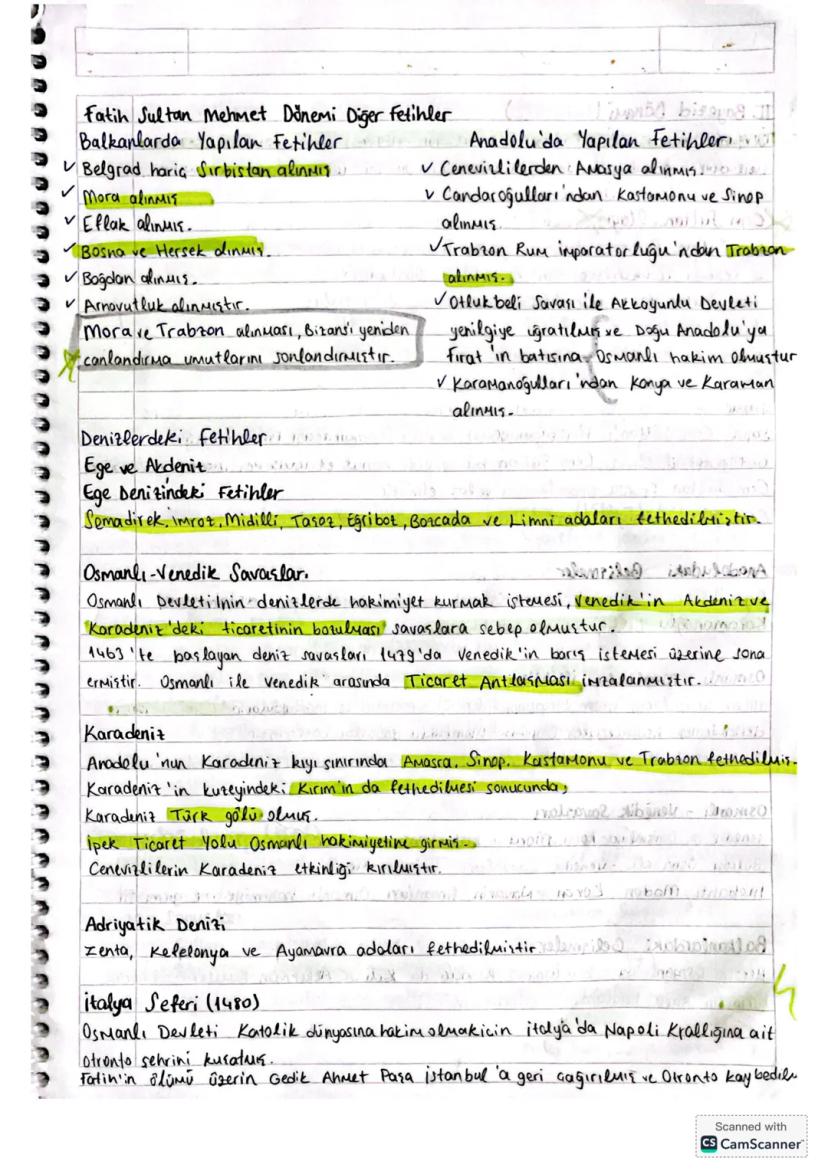 Fatih Sultan Mehmet Dönemi Diğer Fetihler
Balkanlarda Yapılan Fetihler
✓ Belgrad hariç Sırbistan alınmış
✓ Mora alınmış
✓ Eflak alınmış.
✓ Bosna ve Hersek alınmış.
✓ Boğdan alınmış.
✓ Arnavutluk alınmıştır.
Mora ve Trabzon alınması, Bizans'ı yeniden
canlandırma umutlarını sonlandırmıştır.
Anadolu'da Yapılan Fetihler
✓ Cenevizlilerden Amasya alınmış.
✓ Candaroğulları'ndan Kastamonu ve Sinop
alınmış.
✓ Trabzon Rum imparatorluğu'ndan Trabzon
alınmış.
✓ Otlukbeli Savaşı ile Akkoyunlu Devleti
yenilgiye uğratılmış ve Doğu Anadolu'ya
Fırat'ın batısına Osmanlı hakim olmuştur
✓ Karamanoğulları'ndan Konya ve Karaman
alınmış.
Denizlerdeki Fetihler
Ege ve Akdeniz
Ege Denizindeki Fetihler
Semadirek, imroz, Midilli, Taşoz, Eğriboz, Bozcada ve Limni adaları fethedilmiştir.
Osmanlı-Venedik Savaşları
Osmanlı Devleti'nin denizlerde hakimiyet kurmak istemesi, Venedik'in Akdeniz ve
Karadeniz'deki ticaretinin bozulması savaşlara sebep olmuştur.
1463'te başlayan deniz savaşları 1479'da Venedik'in barış istemesi üzerine sona
ermiştir. Osmanlı ile Venedik arasında Ticaret Antlaşması imzalanmıştır.
Karadeniz
Anadolu'nun Karadeniz kıyı sınırında Amasra, Sinop, Kastamonu ve Trabzon fethedilmiş.
Karadeniz'in kuzeyindeki Kırım'ın da fethedilmesi sonucunda;
Karadeniz Türk gölü olmuş.
İpek Ticaret Yolu Osmanlı hakimiyetine girmiş.
Cenevizlilerin Karadeniz etkinliği kırılmıştır.
Adriyatik Denizi
Zenta, Kefelonya ve Ayamavra adaları fethedilmiştir
İtalya Seferi (1480)
Osmanlı Devleti Katolik dünyasına hakim olmak için italya'da Napoli Krallığına ait
otronto şehrini kuşatmış.
Fatih'in ölümü üzerin Gedik Ahmet Paşa İstanbul'a geri çağırılmış ve Otronto kaybedilm
Scanned with
CS CamScanner